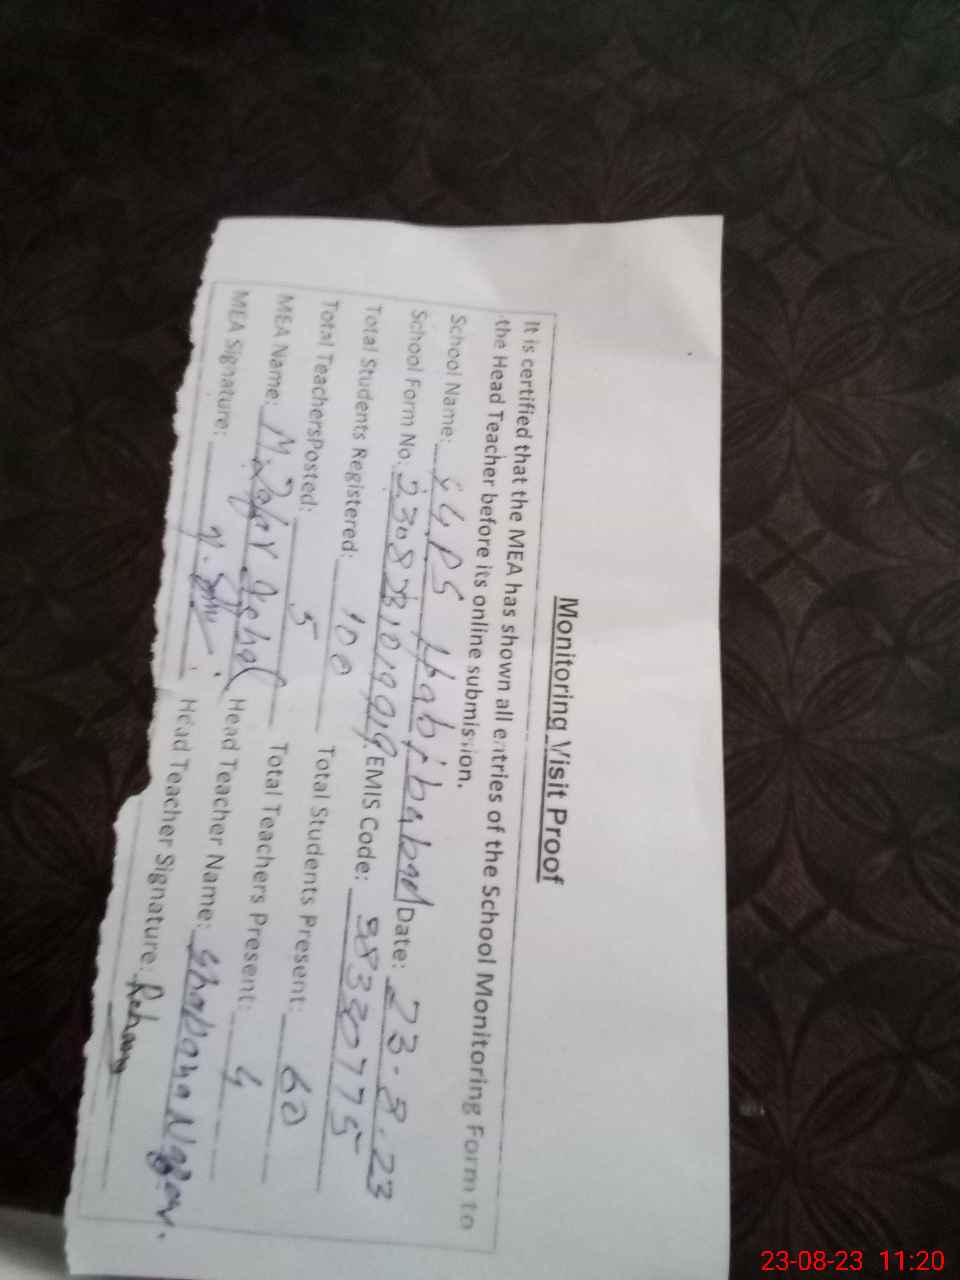 Monitoring Visit Proof
It is certified that the MEA has shown all entries of the School Monitoring Form to
the Head Teacher before its online submission.
School Name: GGPS Habibabad Date: 23.8.23
School Form No. EMIS Code: 38330775
Total Students Registered: 100 Total Students Present: 60
Total TeachersPosted: 5 Total Teachers Present: 4
MEA Name: M. Zafar Iqbal Head Teacher Name: Shabana
MEA Signature: Head Teacher Signature:
23-08-23 11:20